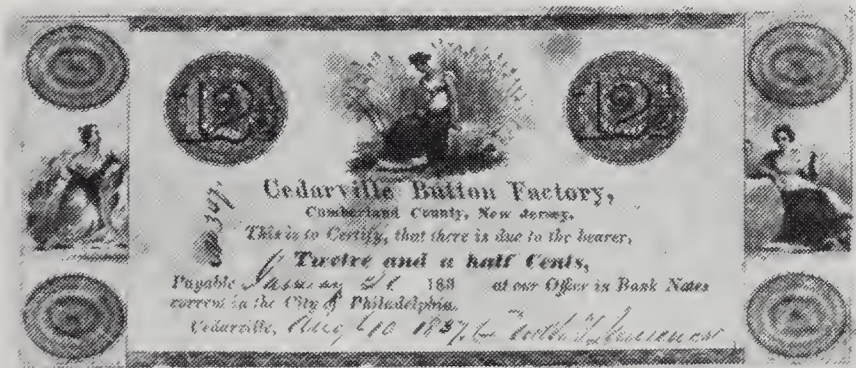 12½ 12½
Cedarville Button Factory,
Cumberland County, New Jersey,
This is to Certify, that there is due to the bearer,
Twelve and a half Cents,
Payable January 183 at our Office in Bank Notes
current in the City of Philadelphia.
Cedarville, Aug 10 1837